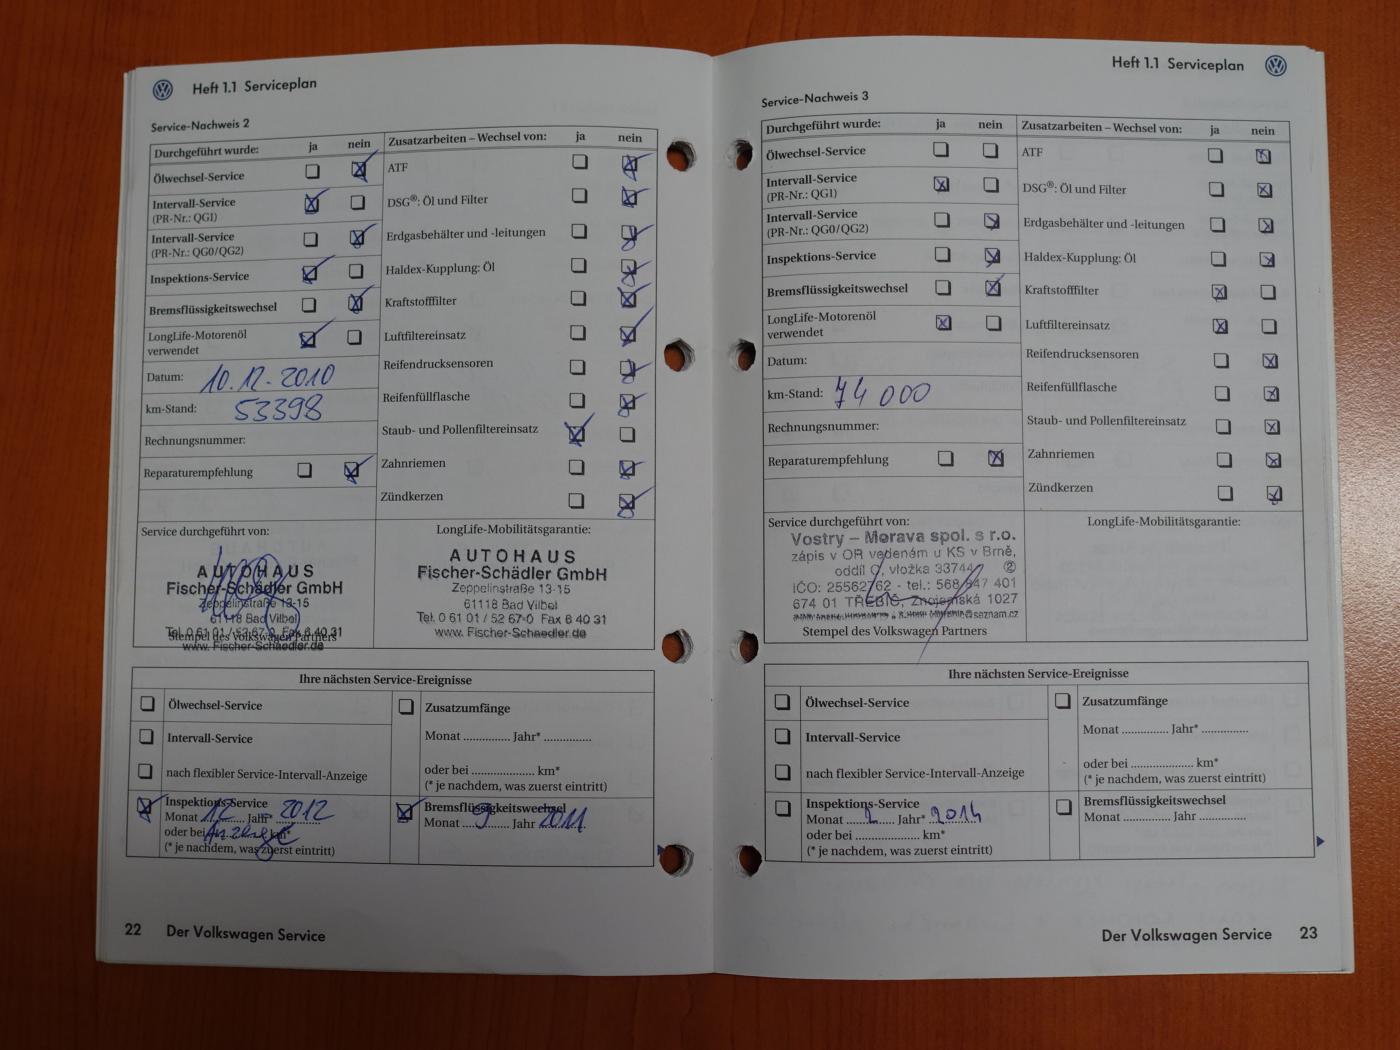 Heft 1.1 Serviceplan
Service-Nachweis 2
Durchgeführt wurde: ja nein
Ölwechsel-Service
Intervall-Service
(PR-Nr.: QG1)
Intervall-Service
(PR-Nr.: QG0/QG2)
Inspektions-Service
Bremsflüssigkeitswechsel
LongLife-Motorenöl
verwendet
Datum: 10.12.2010
km-Stand: 53398
Rechnungsnummer:
Reparaturempfehlung
Zusatzarbeiten – Wechsel von: ja nein
ATF
DSG®: Öl und Filter
Erdgasbehälter und -leitungen
Haldex-Kupplung: Öl
Kraftstofffilter
Luftfiltereinsatz
Reifendrucksensoren
Reifenfüllflasche
Staub- und Pollenfiltereinsatz
Zahnriemen
Zündkerzen
Service durchgeführt von:
AUTOHAUS
Fischer-Schädler GmbH
Zeppelinstraße 13-15
61118 Bad Vilbel
Tel. 0 61 01 / 52 67-0 Fax 6 40 31
Stempel des Volkswagen Partners
www. Fischer-Schaedler.de
LongLife-Mobilitätsgarantie:
AUTOHAUS
Fischer-Schädler GmbH
Zeppelinstraße 13-15
61118 Bad Vilbel
Tel. 0 61 01 / 52 67-0 Fax 6 40 31
www. Fischer-Schaedler.de
Ihre nächsten Service-Ereignisse
Ölwechsel-Service
Intervall-Service
nach flexibler Service-Intervall-Anzeige
Inspektions-Service
Monat 12 Jahr* 2012
oder bei Anzeige km*
(* je nachdem, was zuerst eintritt)
Zusatzumfänge
Monat ............... Jahr* ...............
oder bei .................... km*
(* je nachdem, was zuerst eintritt)
Bremsflüssigkeitswechsel
Monat 9 Jahr 2011
22 Der Volkswagen Service
Heft 1.1 Serviceplan
Service-Nachweis 3
Durchgeführt wurde: ja nein
Ölwechsel-Service
Intervall-Service
(PR-Nr.: QG1)
Intervall-Service
(PR-Nr.: QG0/QG2)
Inspektions-Service
Bremsflüssigkeitswechsel
LongLife-Motorenöl
verwendet
Datum:
km-Stand: 74 000
Rechnungsnummer:
Reparaturempfehlung
Zusatzarbeiten – Wechsel von: ja nein
ATF
DSG®: Öl und Filter
Erdgasbehälter und -leitungen
Haldex-Kupplung: Öl
Kraftstofffilter
Luftfiltereinsatz
Reifendrucksensoren
Reifenfüllflasche
Staub- und Pollenfiltereinsatz
Zahnriemen
Zündkerzen
Service durchgeführt von:
Vostry – Morava spol. s r.o.
zápis v OR vedeném u KS v Brně,
oddíl C, vložka 33744 2
IČO: 25562762 - tel.: 568 847 401
674 01 TŘEBÍČ, Znojemská 1027
Stempel des Volkswagen Partners
LongLife-Mobilitätsgarantie:
Ihre nächsten Service-Ereignisse
Ölwechsel-Service
Intervall-Service
nach flexibler Service-Intervall-Anzeige
Inspektions-Service
Monat 2 Jahr* 2014
oder bei .................... km*
(* je nachdem, was zuerst eintritt)
Zusatzumfänge
Monat ............... Jahr* ...............
oder bei .................... km*
(* je nachdem, was zuerst eintritt)
Bremsflüssigkeitswechsel
Monat ............... Jahr ...............
Der Volkswagen Service 23